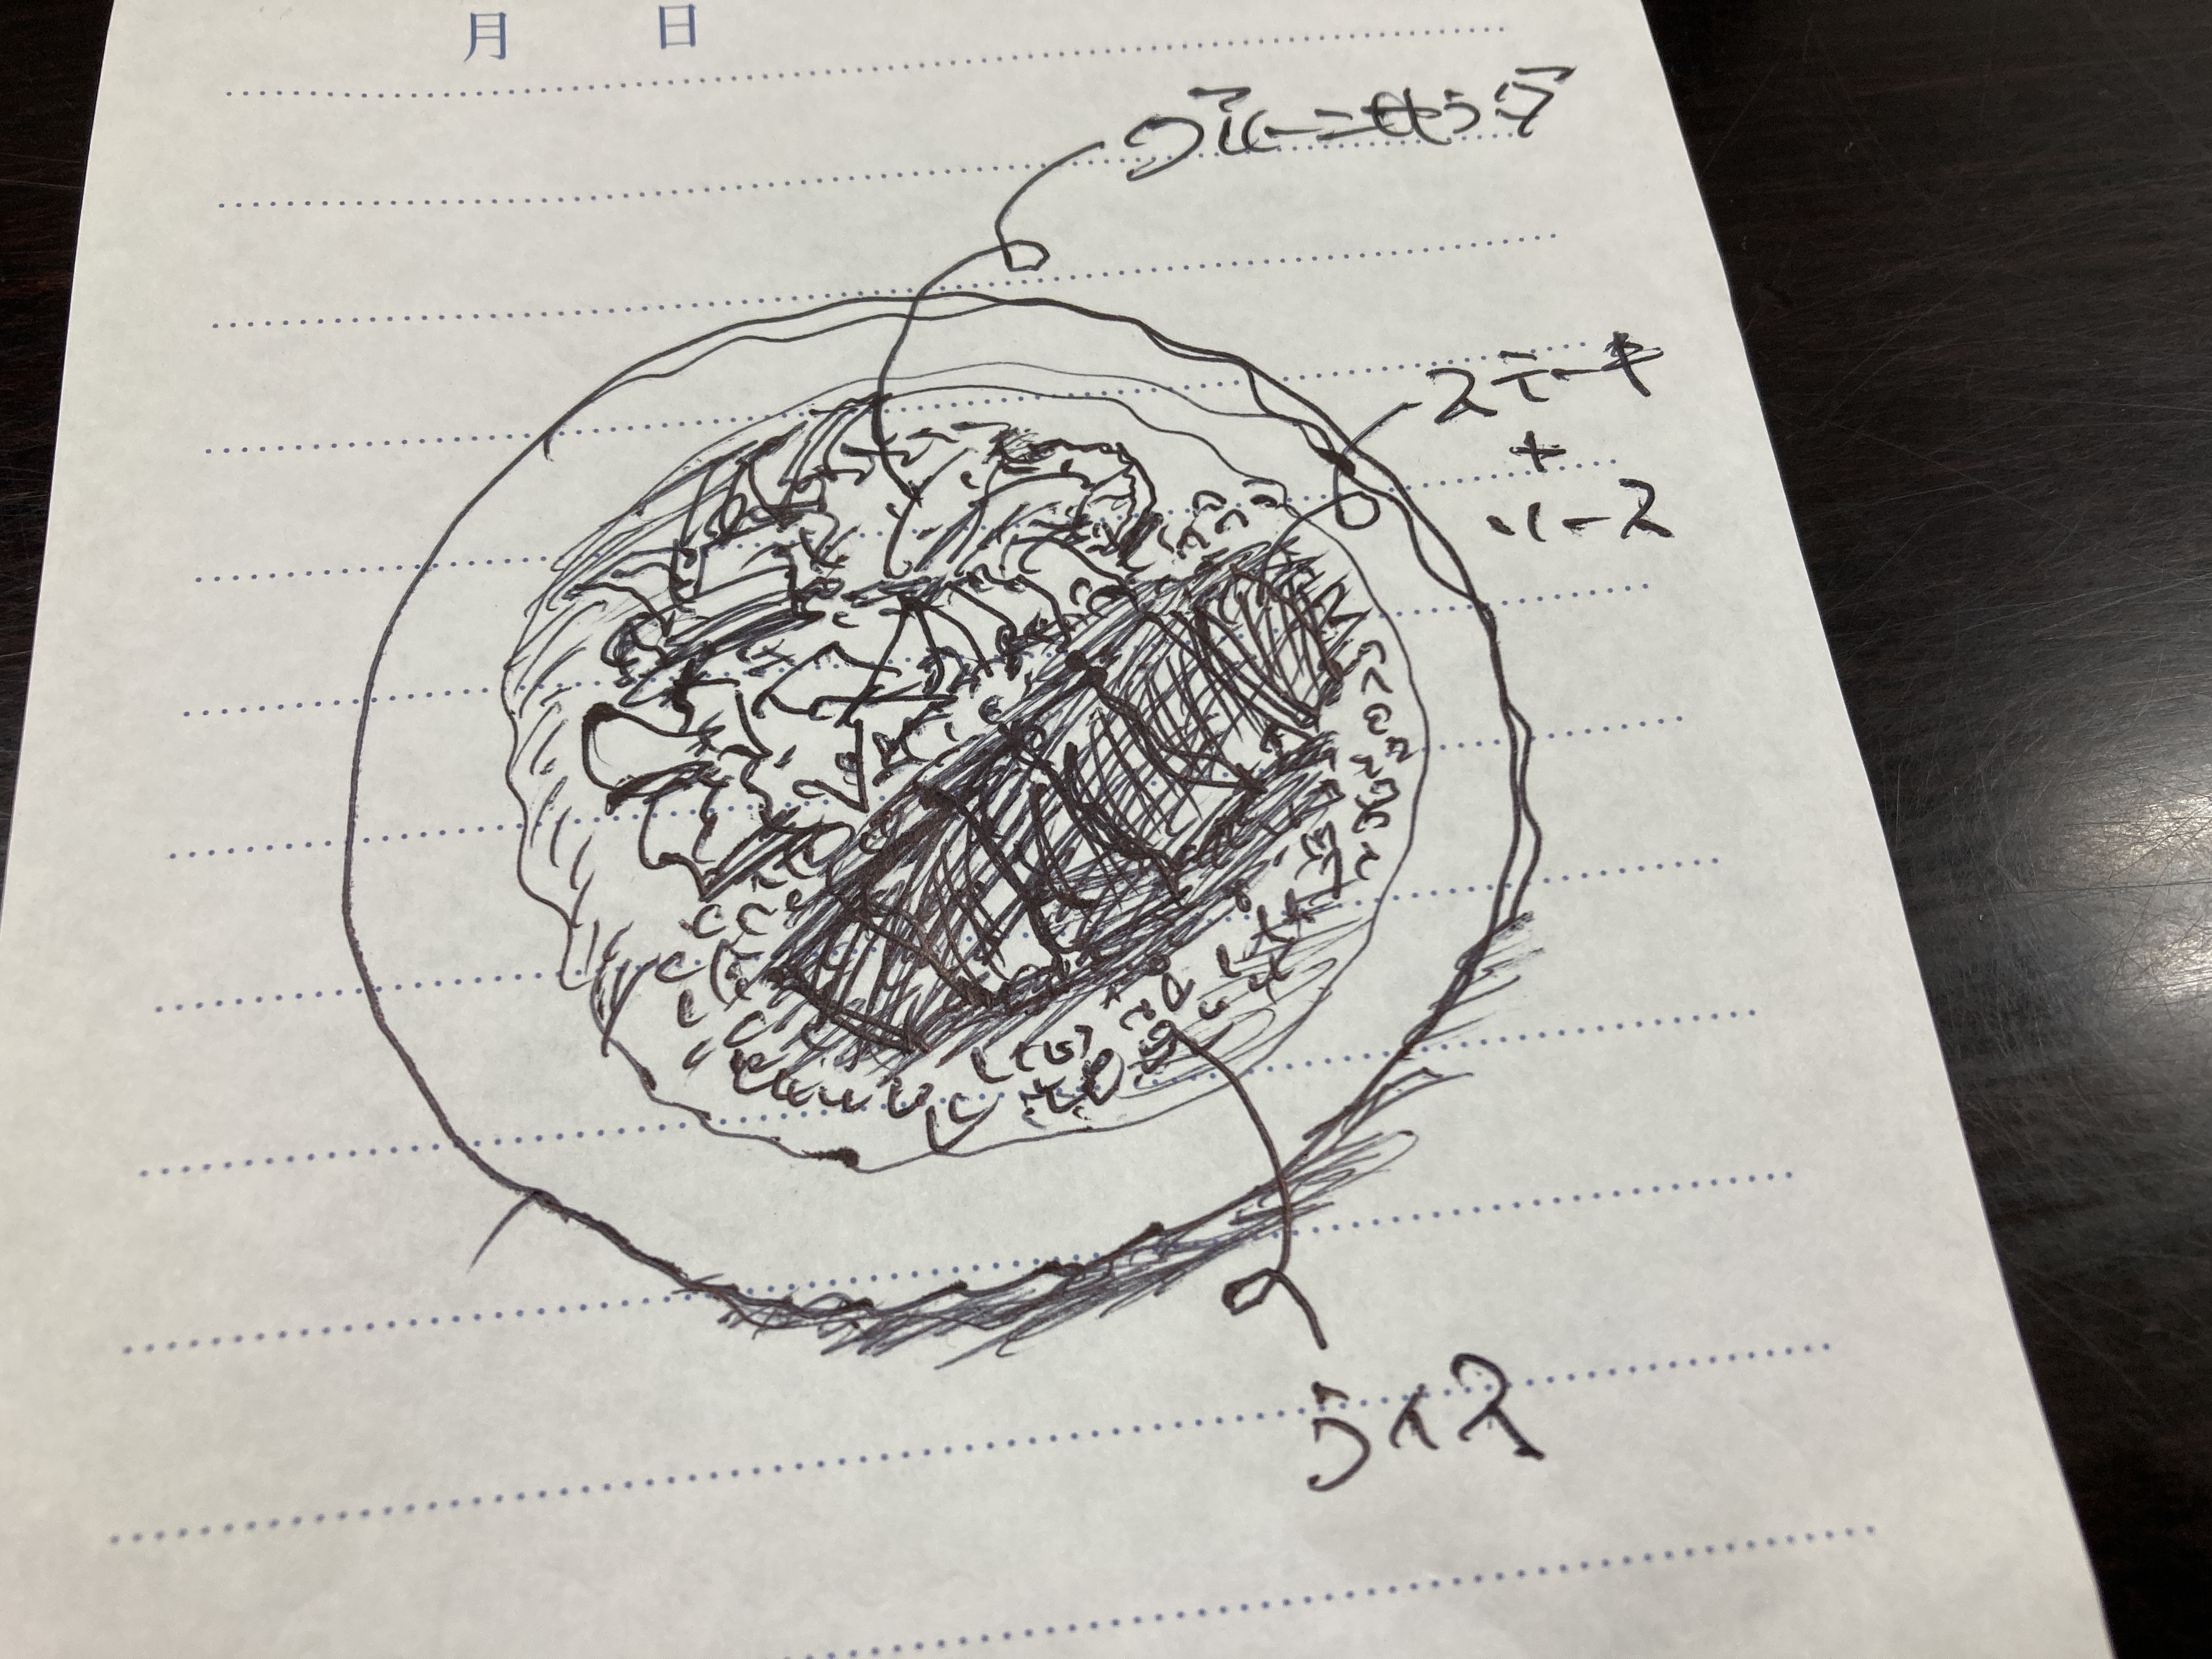 月 日
グリーンサラダ
ステーキ
+
ソース
ライス